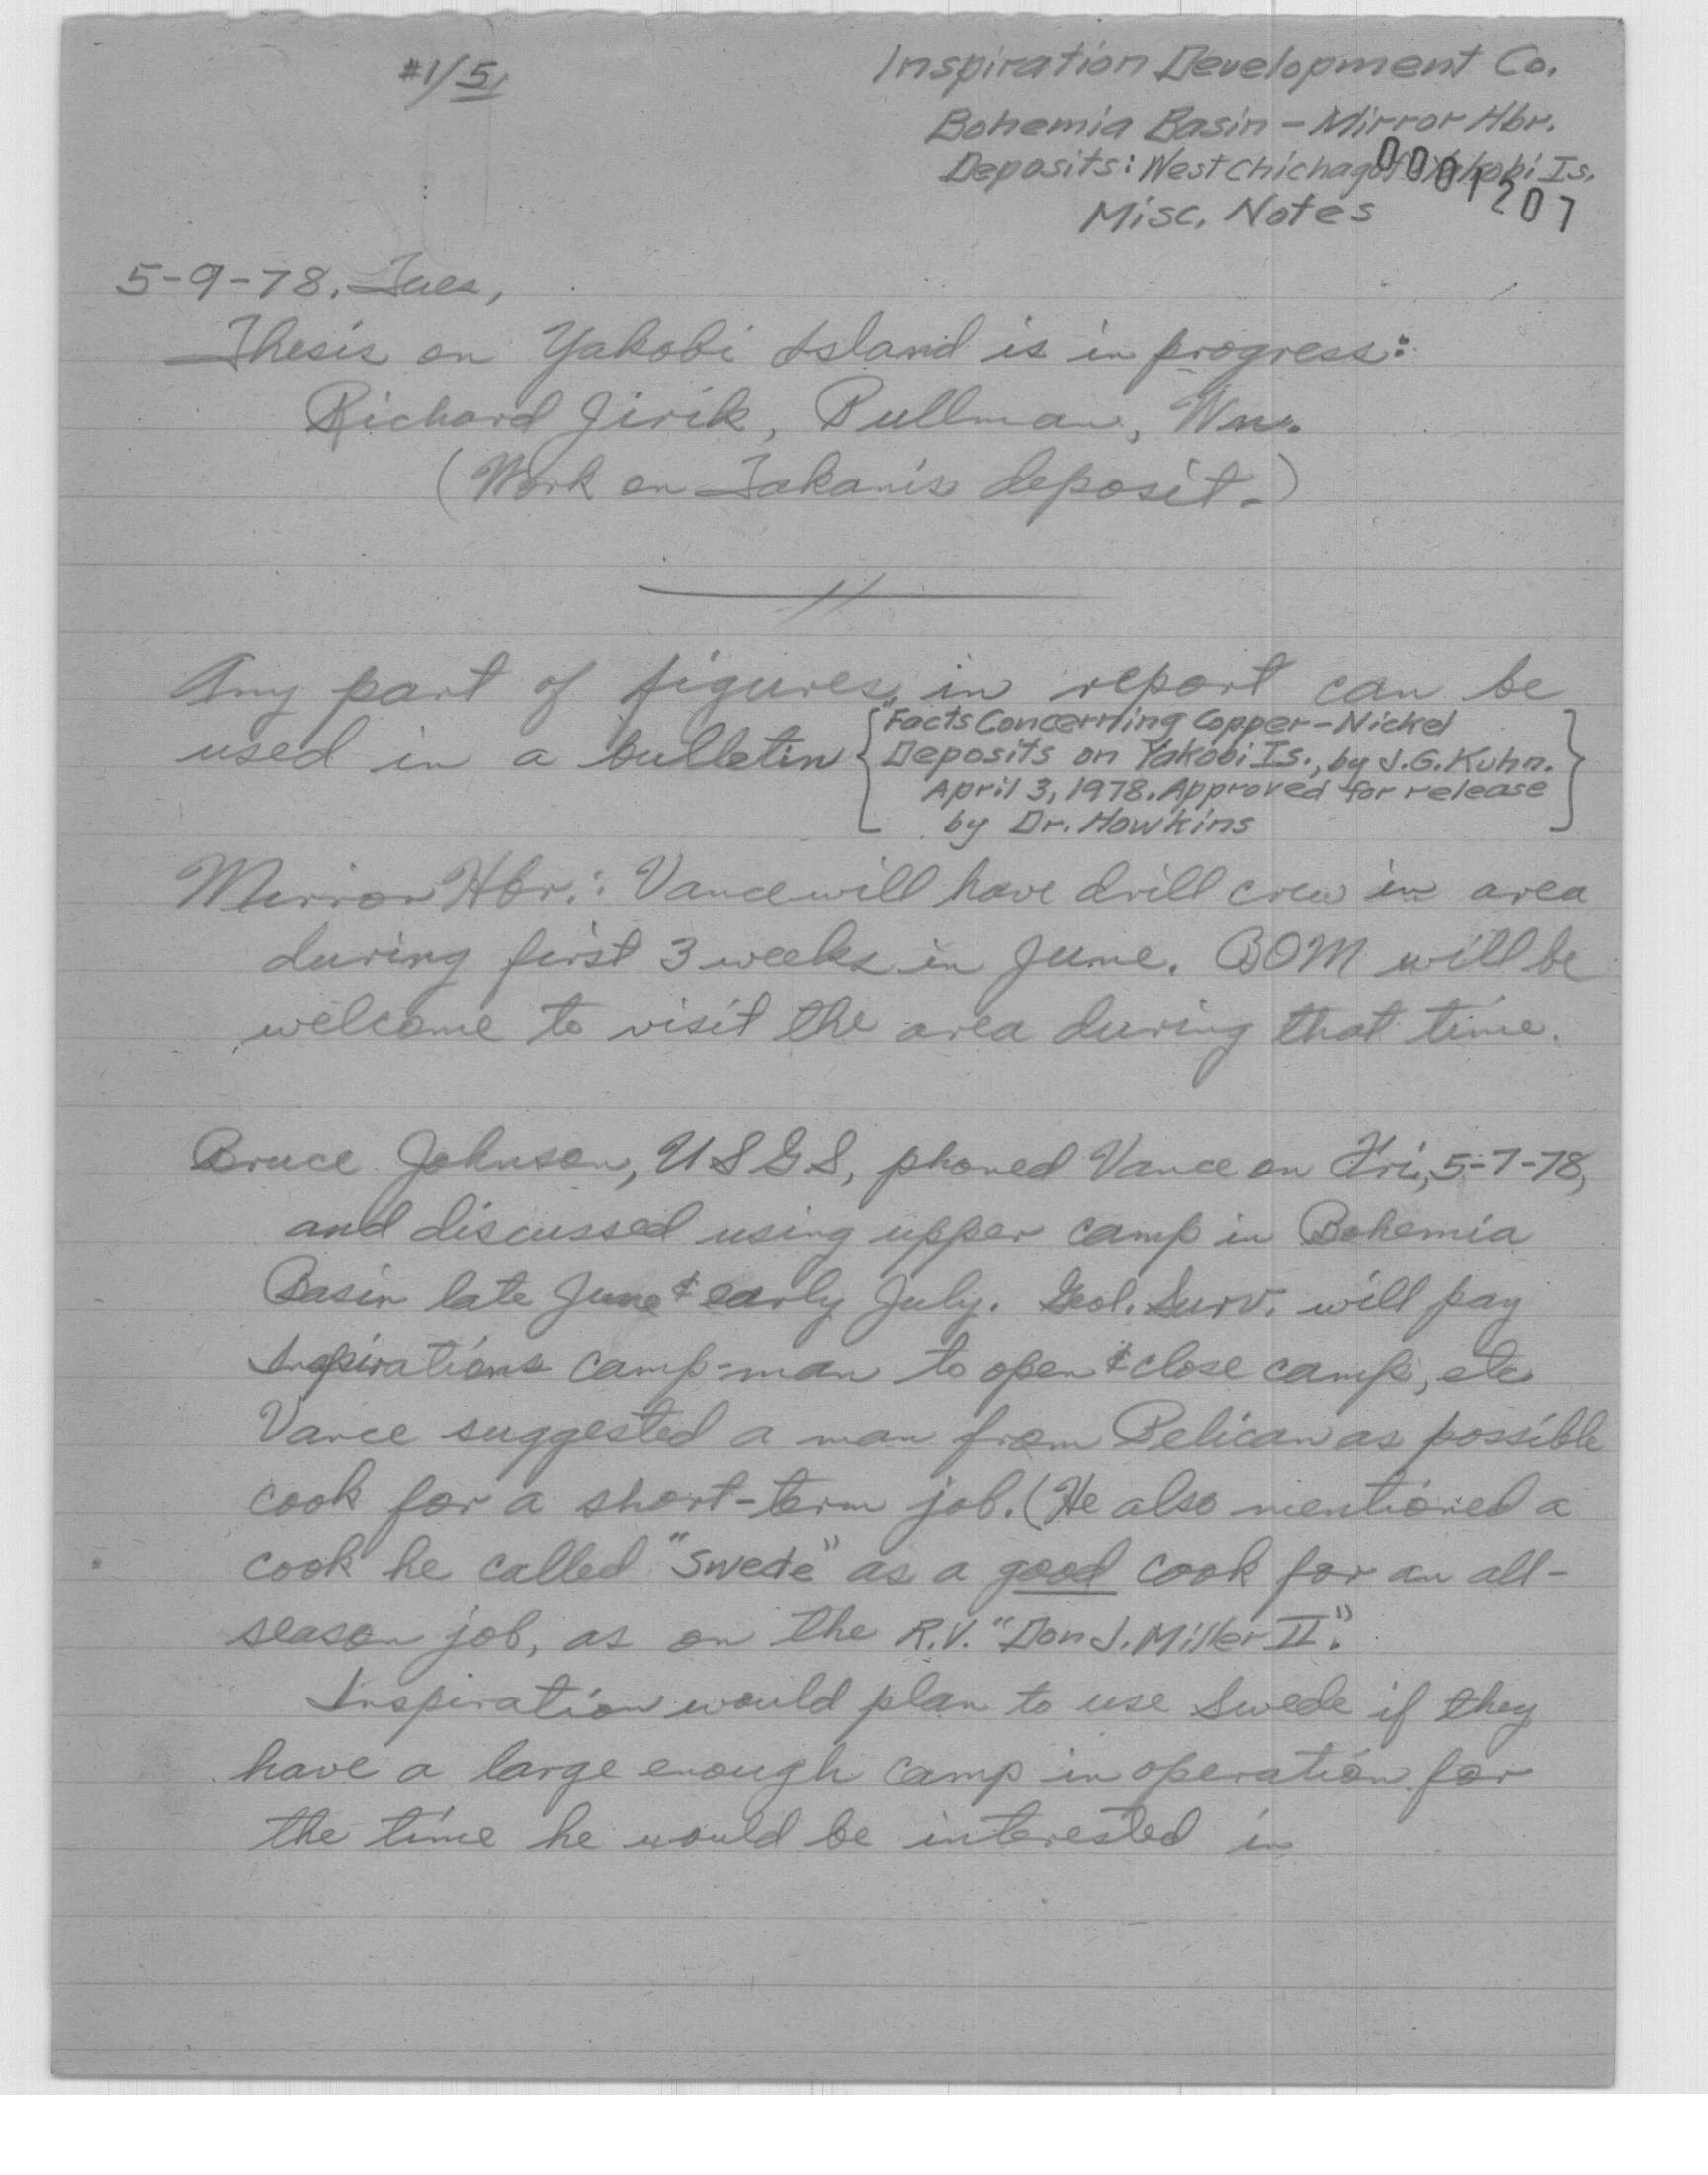 #1/5
Inspiration Development Co.
Bohemia Basin - Mirror Hbr.
Deposits: West Chichagof Yakobi Is.
0001207
Misc. Notes
5-9-78, Tues,
Thesis on Yakobi Island is in progress:
Richard Jirik, Pullman, Wn.
(Work on Takanis deposit.)
Any part of figures in report can be
used in a bulletin
"Facts Concerning Copper-Nickel
Deposits on Yakobi Is., by J.G. Kuhn.
April 3, 1978. Approved for release
by Dr. Howkins
Mirror Hbr.: Vance will have drill crew in area
during first 3 weeks in June. BOM will be
welcome to visit the area during that time.
Bruce Johnson, USGS, phoned Vance on Fri, 5-7-78,
and discussed using upper camp in Bohemia
Basin late June & early July. Geol. Surv. will pay
Inspirations camp-man to open & close camp, etc
Vance suggested a man from Pelican as possible
cook for a short-term job. (He also mentioned a
cook he called "Swede" as a good cook for an all-
season job, as on the R.V. "Don J. Miller II".
Inspiration would plan to use Swede if they
have a large enough camp in operation for
the time he would be interested in